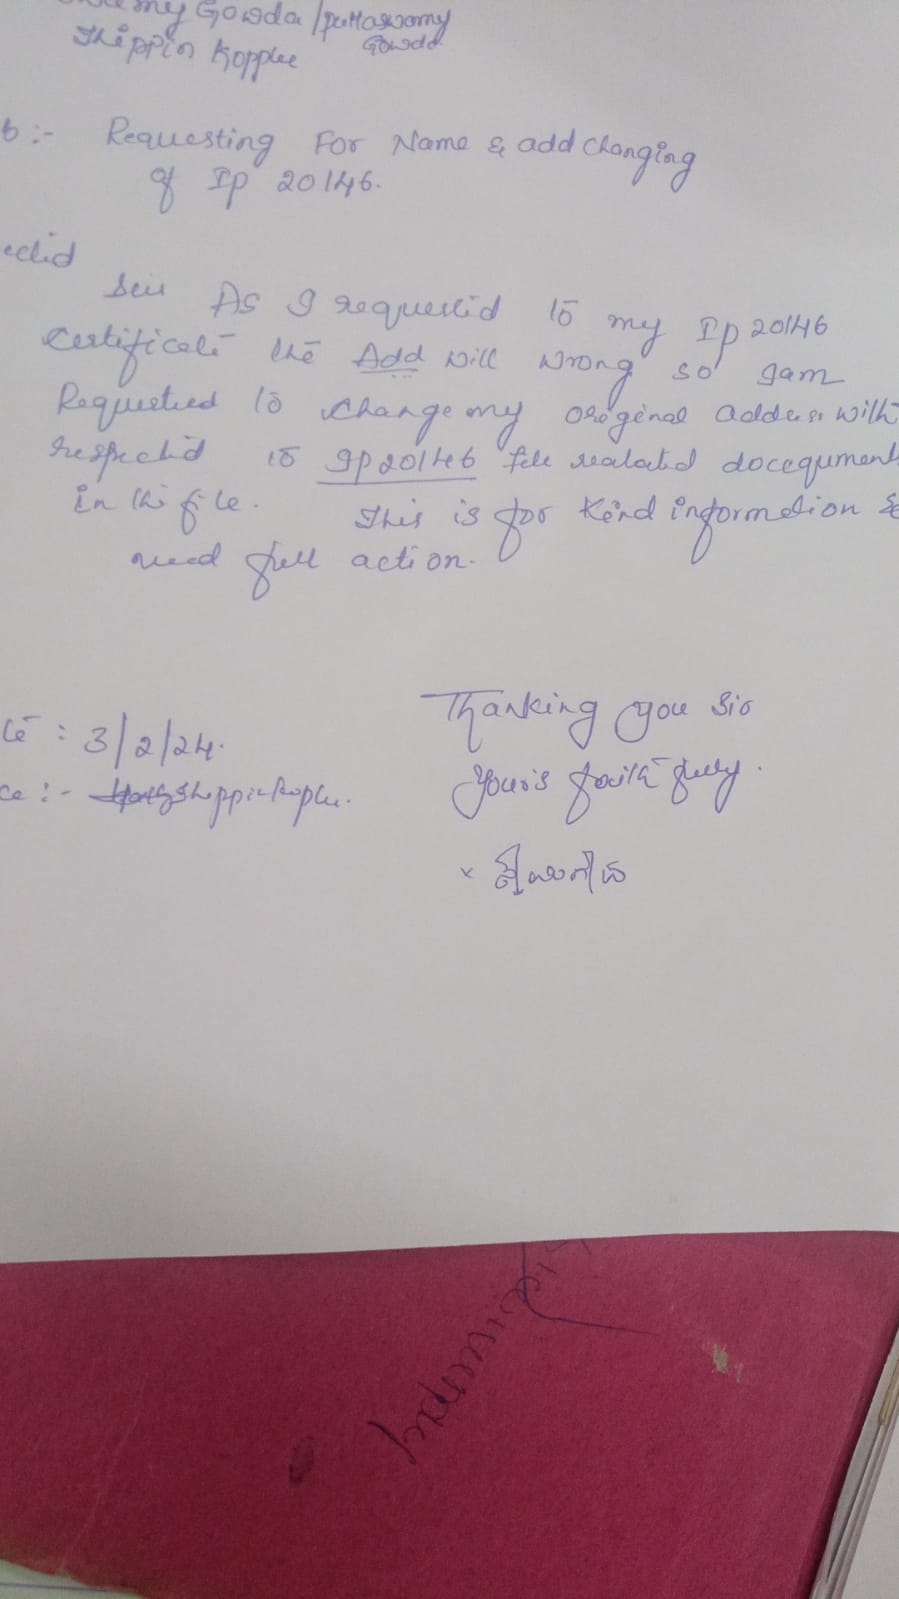 my Gowda / puttaswamy
Gowda
Thippin Kopplu
b :- Requesting For Name & add changing
of Ip 20146.
ectid
Sir As I requestid to my Ip 20146
Certificate the Add will wrong so Iam
Requested to change my original address with
respectid to Ip 20146 file realatid docequment
in thi file. This is for Kind information &
need full action.
Thanking you Sir
te : 3/2/24.
Your's faith fully.
ce :- Thippin kopplu.
x